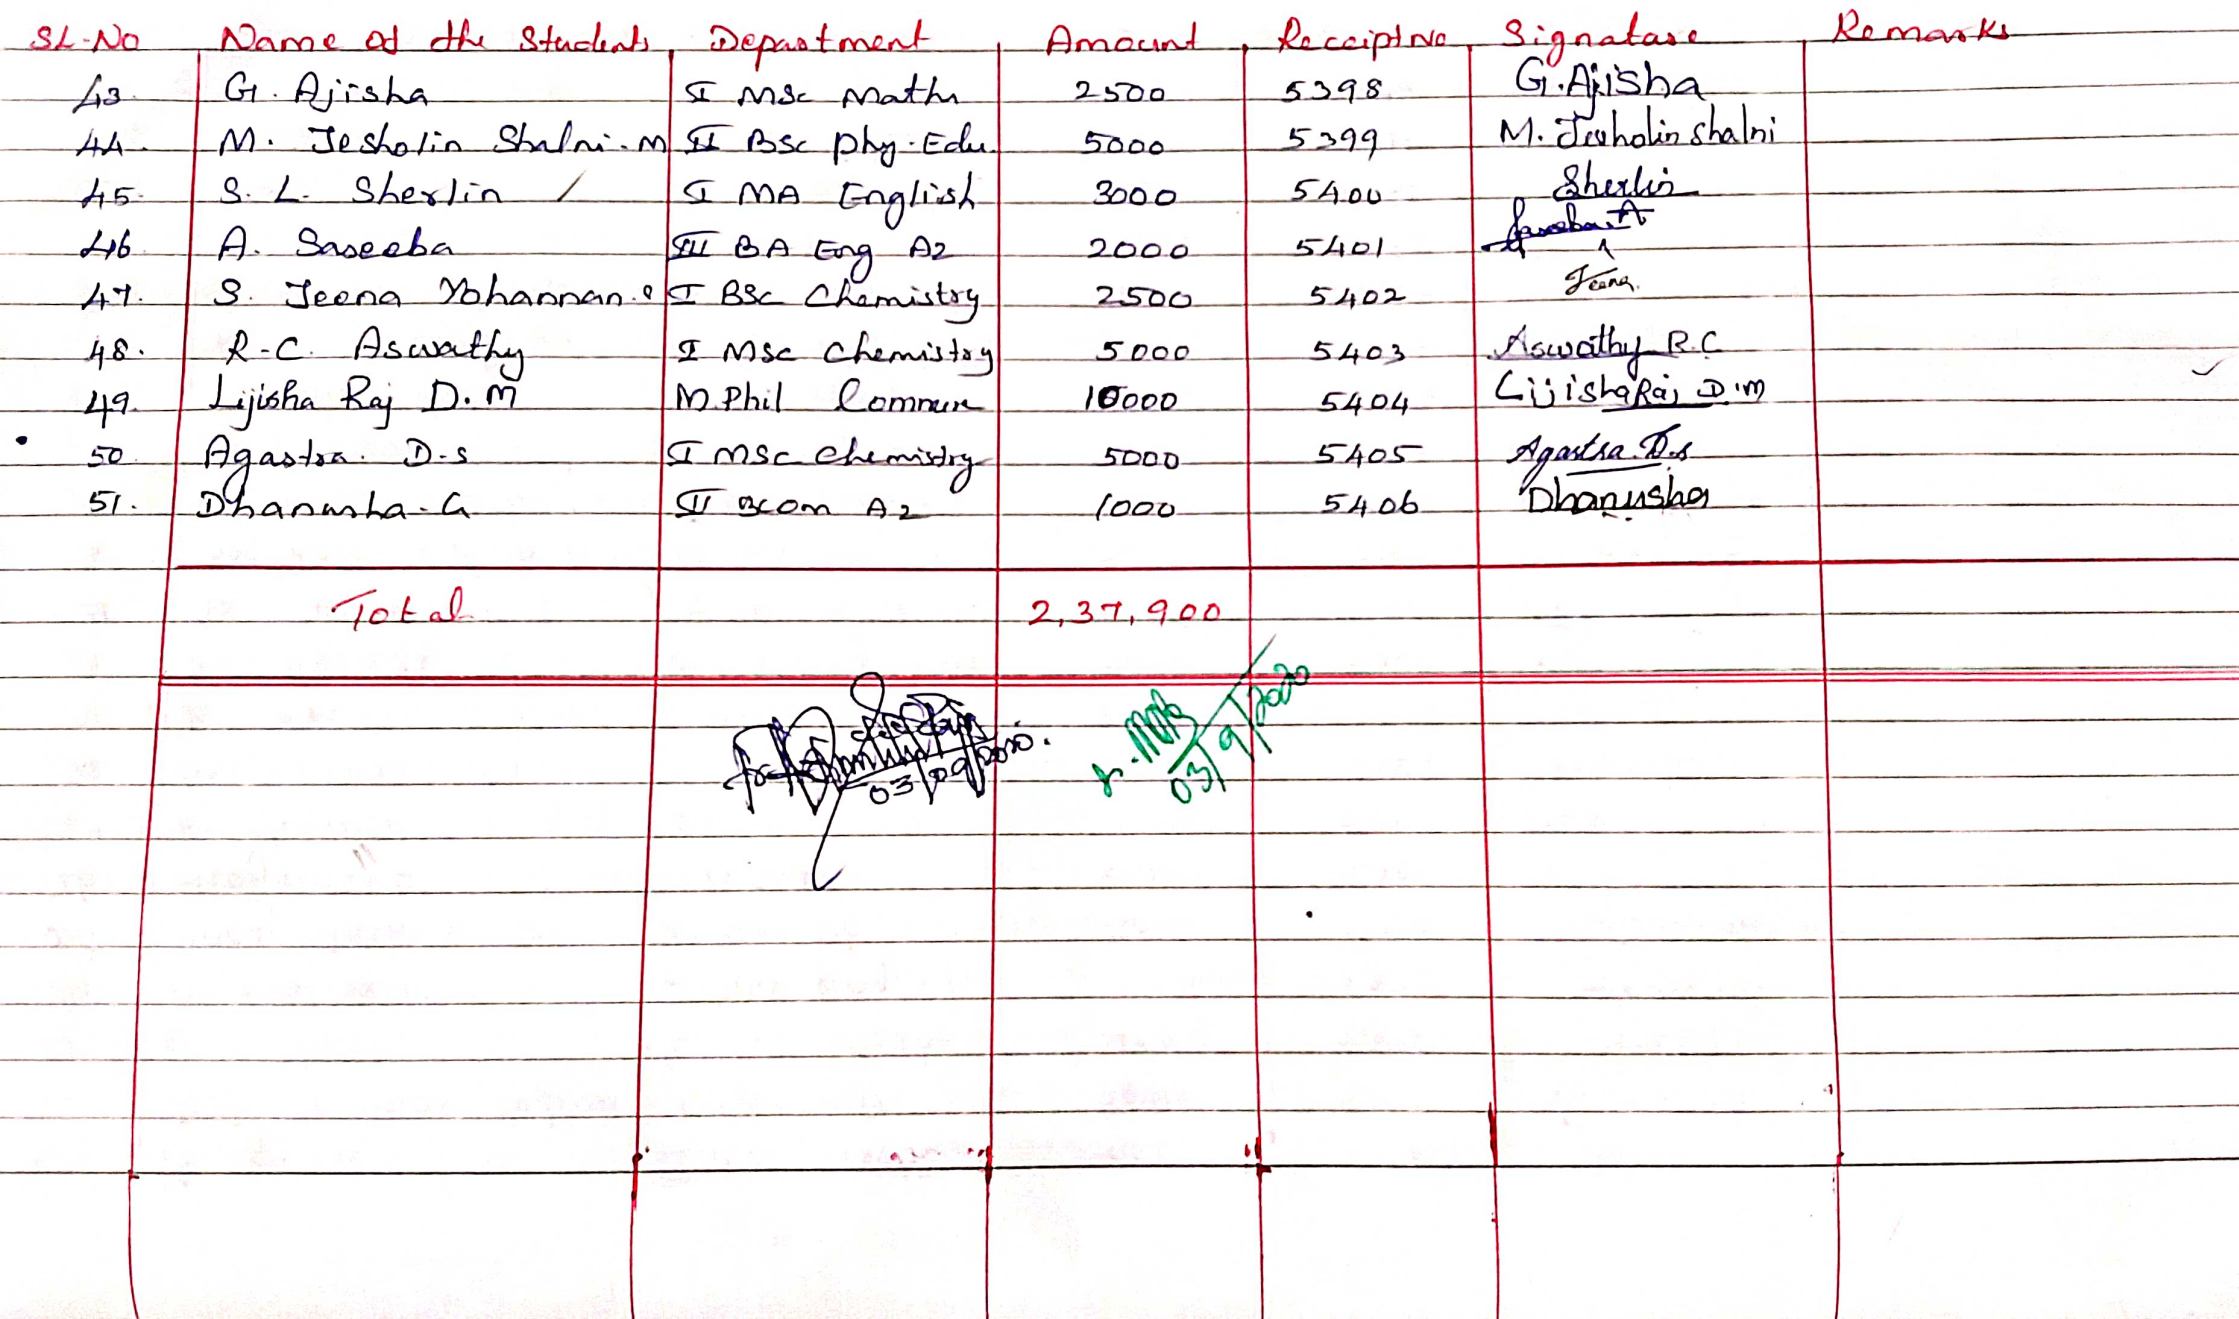 SL-No Name of the Students Department Amount Receipt No Signature Remarks
43. G. Ajisha I MSc Maths 2500 5398 G. Ajisha
44. M. Jesholin Shalni. M II BSc Phy. Edu. 5000 5399 M. Jesholin Shalni
45. S. L. Sherlin / I MA English 3000 5400 Sherlin
46. A. Saseeba III BA Eng A2 2000 5401
47. S. Jeena Yohannan. I BSc Chemistry 2500 5402 Jeena.
48. R.C. Aswathy I MSc Chemistry 5000 5403 Aswathy R.C
49. Lijisha Raj D.M M.Phil Commerce 10000 5404 Lijisha Raj D.M
50. Agastra. D.S I MSc Chemistry 5000 5405 Agastra. D.S
51. Dhanusha. G II BCom A2 1000 5406 Dhanusha
Total 2,37,900
03/09/2020. 03/9/2020